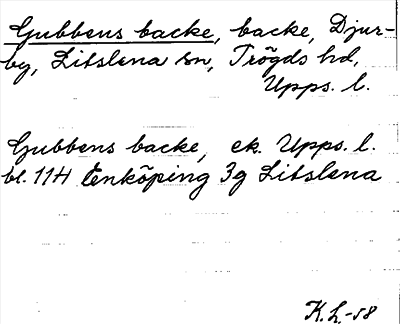 Gubbens backe, backe, Djur-
by, Litslena sn, Trögds hd,
Upps. l.
Gubbens backe, ek. Upps. l.
bl. 11H Enköping 3g Litslena
K.L.-58